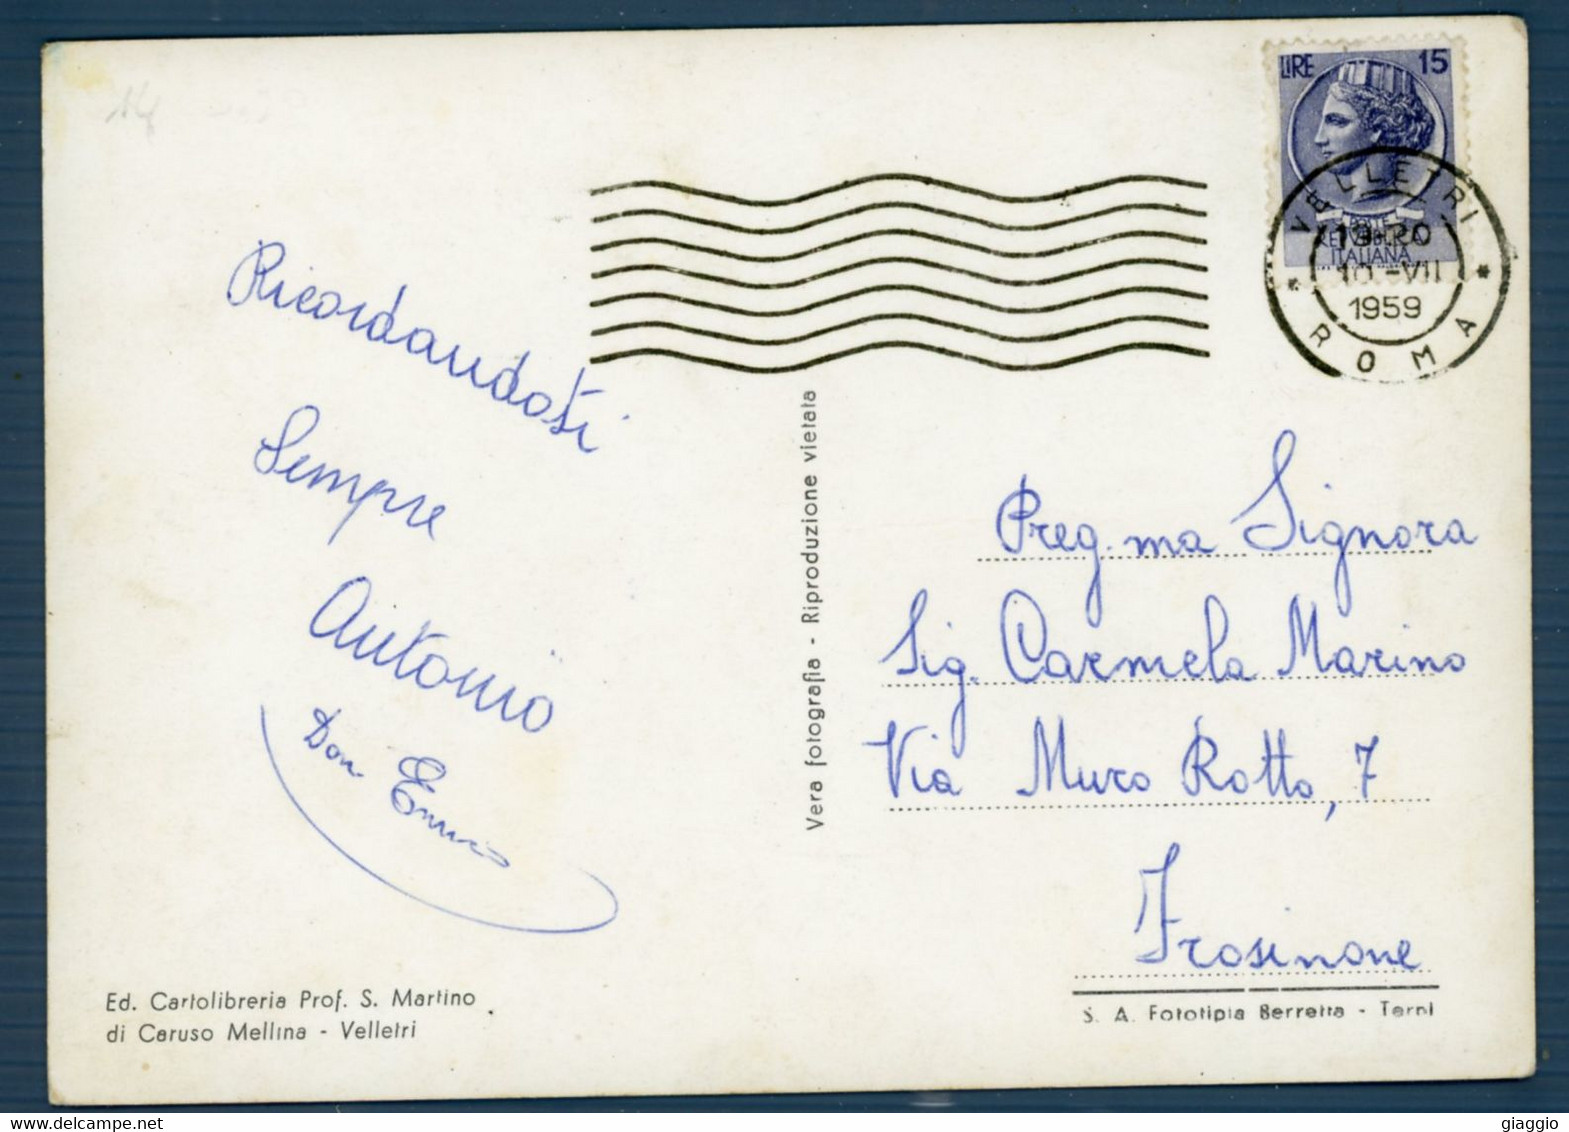 14
LIRE 15
POSTE
REPUBBLICA
ITALIANA
VELLETRI
19-20
10.-VII
1959
* ROMA *
Ricordandoti
Sempre
Antonio
Don Enno
Vera fotografia - Riproduzione vietata
Preg.ma Signora
Sig. Carmela Marino
Via Muro Rotto, 7
Frosinone
Ed. Cartolibreria Prof. S. Martino
di Caruso Mellina - Velletri
S. A. Fototipia Berretta - Terni
giaggio